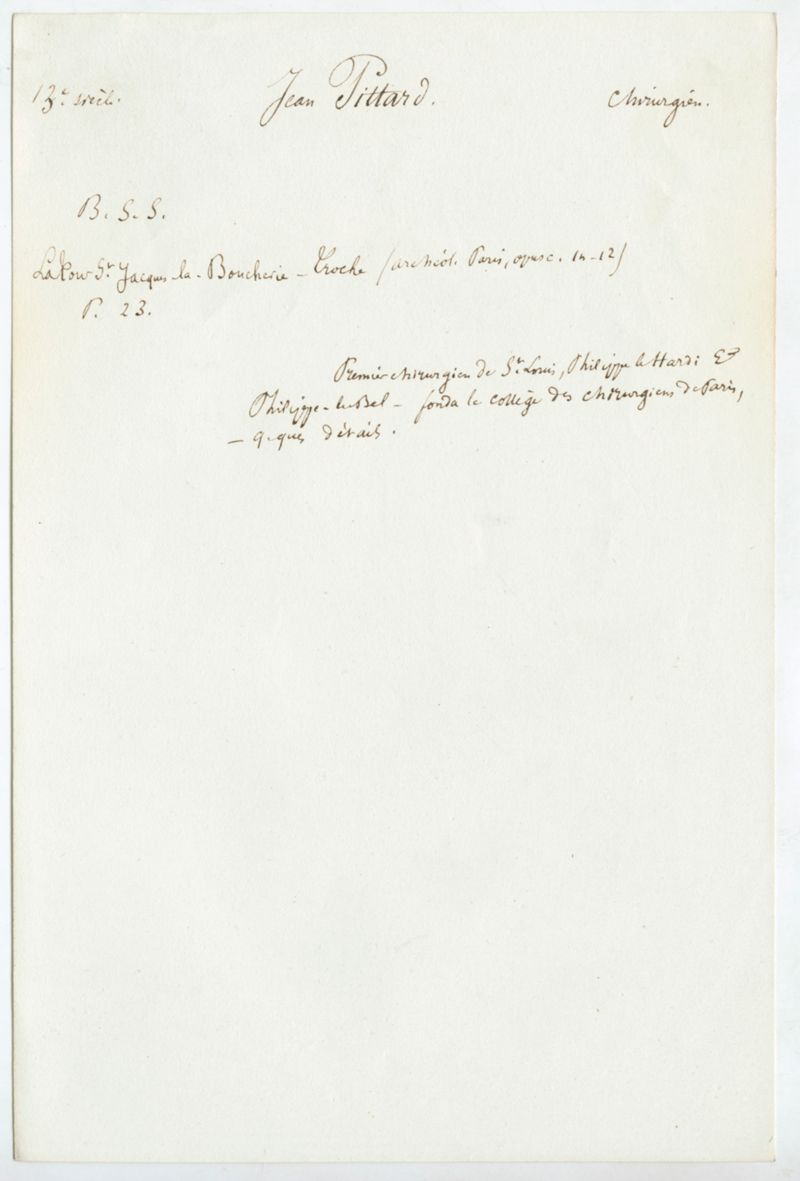 13e siècle. Jean Pittard. Chirurgien.
B. S. S.
La tour St. Jacques-la-Boucherie - Troche (archéol. Paris, opusc. in-12)
P. 23.
Premier chirurgien de St. Louis, Philippe le Hardi et
Philippe-le-Bel - fonda le collège des chirurgiens de Paris,
- q.ques détails.